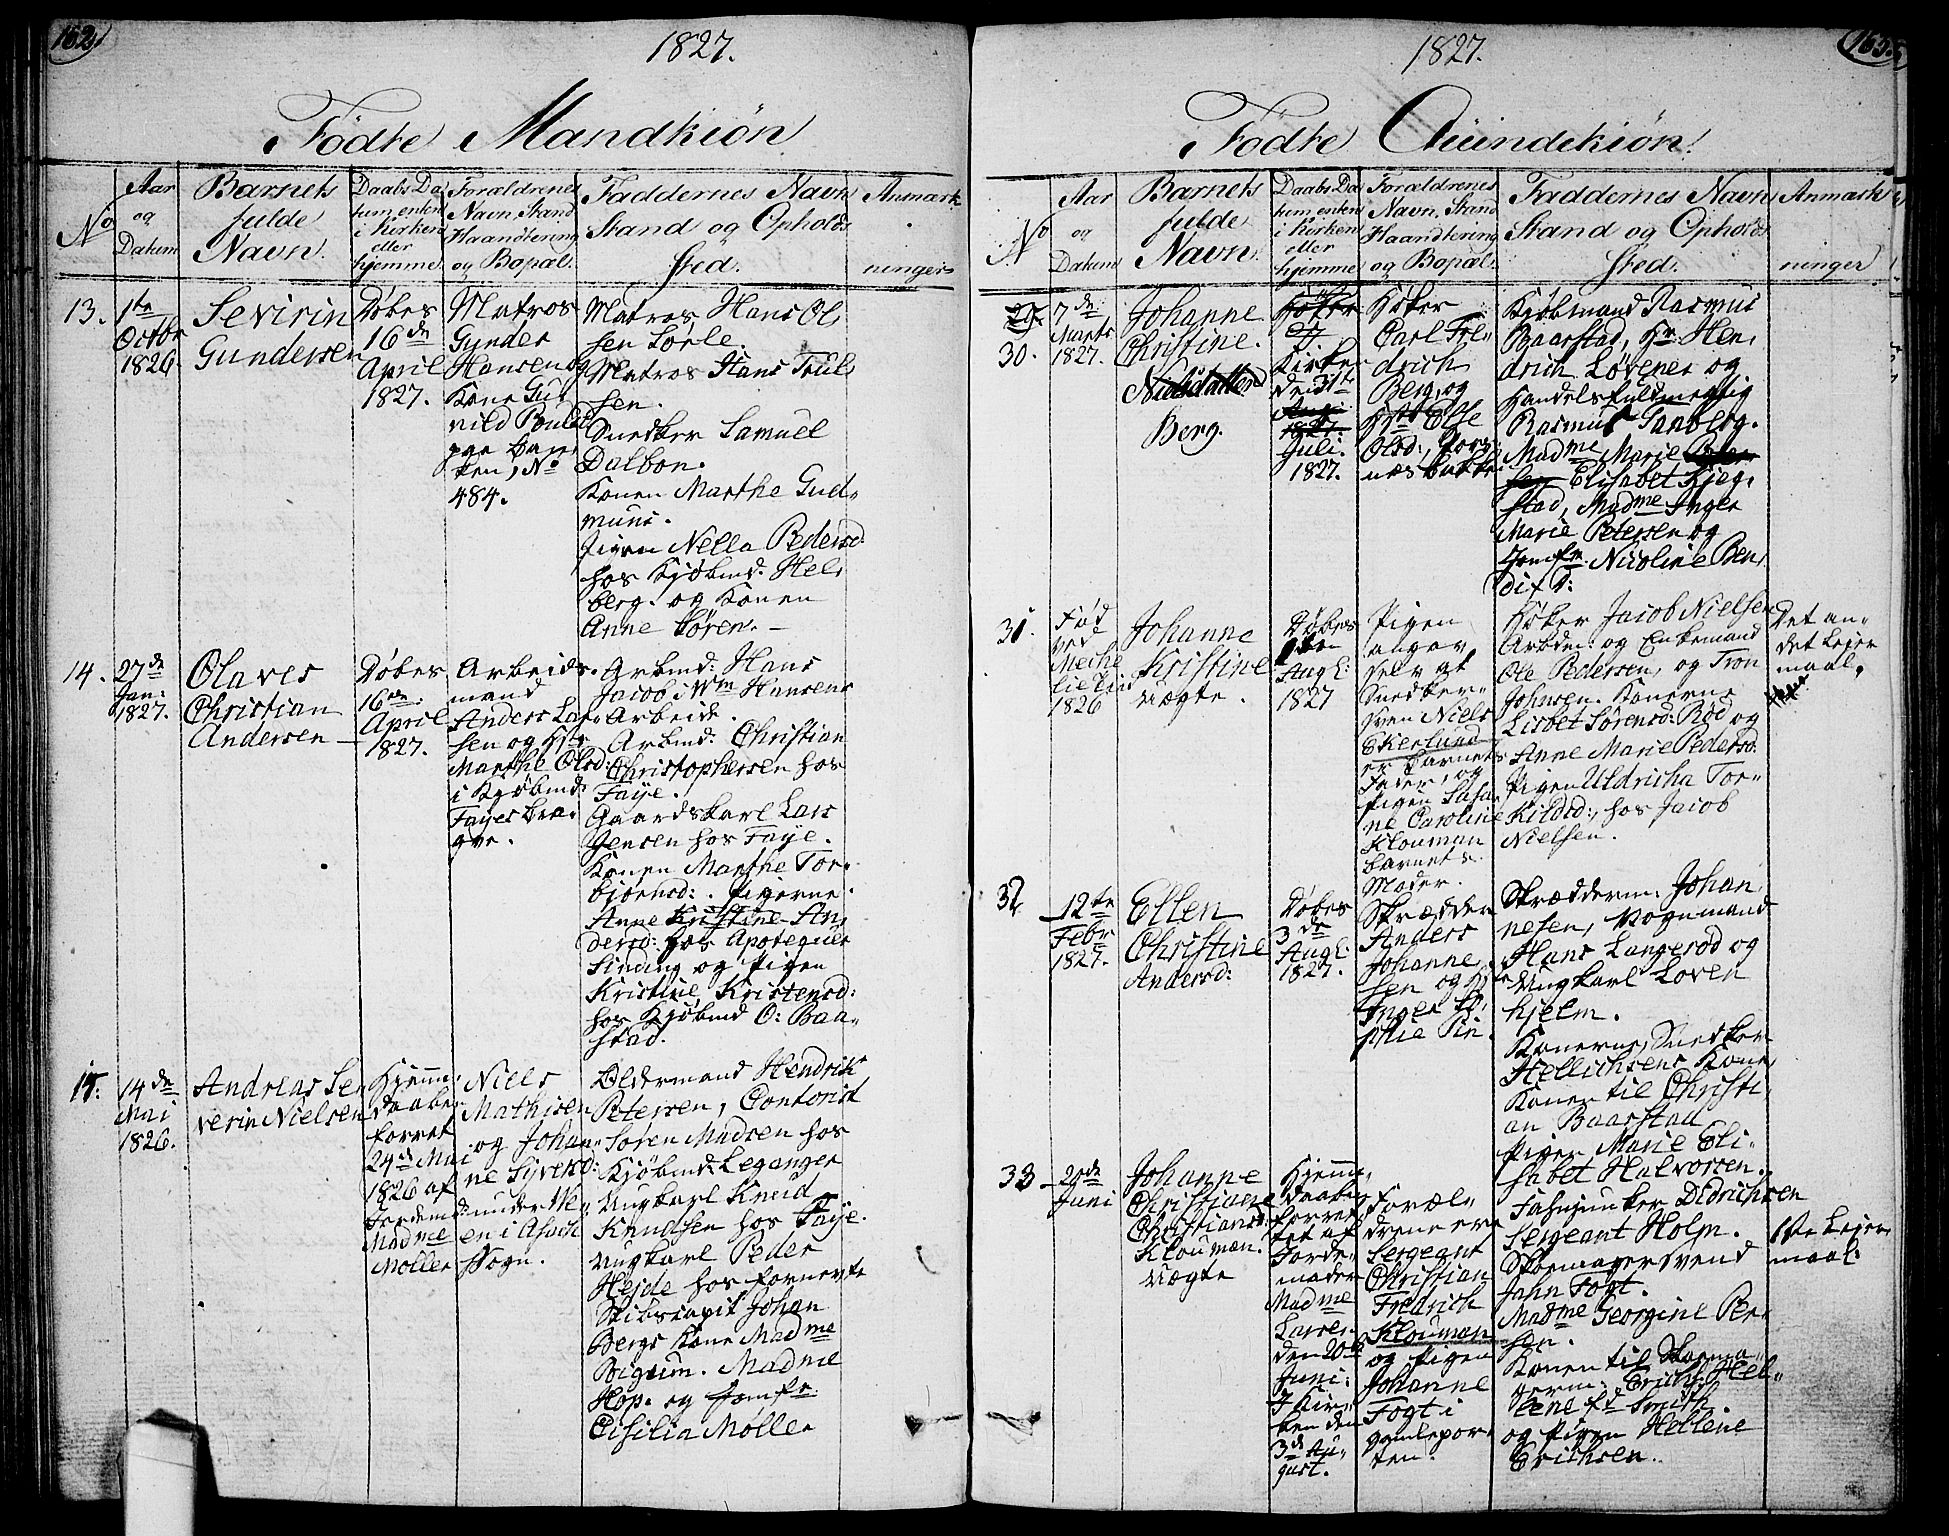 162
1827.
Fødte Mandkiøn
No
Aar
og
Datum
Barnets
fulde
Navn.
Daabs Da
tum enten
i Kirken
eller
hjemme
Forældrenes
Navn, Stand
Haandtering
og Bopæl.
Faddernes Navn
Stand og Opholds
Sted.
Anmærk
ninger
13.
1te
Octbr
1826
Sevirin
Gundersen
Døbes
16de
April
1827.
Matros
Gunder
Hansen og
Kone Gun
vild Pouls
paa Ban
ken, No
484.
Matros Hans Ol
sen Sørle.
Matros Hans Truls
sen.
Snedker Samuel
Dalbon.
Konen Marthe Gud,
muns.
Pigen Nella Pedersd.
hos Kjøbmd. Hel,
berg. og Konen
Anne Søren. –
14.
27de
Jan:
1827.
Olaves
Christian
Andersen –
Døbes
16de
April
1827.
Arbeids,
mand
Anders Lar,
sen og Hst.
Marthe Olsd:
i Kjøbmd.
Fayes Bra,
gve.
Arbmd: Hans
Jacob i Wm Hansens
Arbeide.
Arbmd: Christian
Christophersen hos
Faye.
Gaardskarl Lars
Jensen hos Faye.
Konen Marthe Tor-
biørnsd:. Pigerne
Anne Kristine An,
dersd: hos Apoteguer
Sinding og Pigen
Kristine Kristensd:
hos Kjøbmd O: Baa-
stad.
15.
14de
Mai
1826.
Andreas Se
verin Nielsen
Hjemme
daaben
forret
24de Mai
1826 af
Jordemd:
Madme
Møller
Niels
Mathisen
og Johan-
ne Syversd:
under We-
en i Asach
Sogn.
Oldermand Hendrik
Petersen, Contorist
Søren Madsen hos
Kjøbmd. Leganger
Ungkarl Knud
Knudsen hos Faye.
Ungkarl Peder
Hejde hos fornevte
Skibscapit Johan
Bergs Kone Madme
Bigsum. Madme
Høp. og Jomfr.
Cisilia Møller
1827.
Fødte Qvindekiøn.
No
Aar
og
Datum
Barnets
fulde
Navn.
Daabs Da
tum, enten
i Kirken
eller
hjemme
Forældrenes
Navn, Stand
Haandtering
og Bopæl.
Faddernes Navn
Stand og Opholds
Sted.
Anmærk
ninger
29.
30.
7de
Marts
1827.
Johanne
Christine.
Berg.
Kirke
den 31te
1827.
Juli:
1827.
Høker
Carl Fre,
drich
Berg, og
Hst Else
Olsd:,
Kjøbmand Rasmus
Baarstad, Hr. Hen,
drich Løvener og
Handelsfuldmegtig
Rasmus Sanberg.
Madme Marie
Elisabet Kjeg,
stad, Madme Inger
Marie Petersen og
Jomfr. Nicoline Ben,
dixd:
31.
Fød
ved
Miche
lie Tid
1826
Johanne
Kristine
Uægte.
Døbes
Augt:
1827
Pigen
angav
selv at
Snedker-
sven Niels
Ekerlund
er Barnets
Fader, og
Pigen Safa,
ne Caroline
Klouman
Barnets
Moder.
Høker Jacob Nielsen
Arbdm: og Enkemand
Ole Pedersen, og Tron
Johnsen. Konerne
Lisbet Sørensd: Bød og
Anne Marie Pedersd.
Pigen Uldricha Tor-
kildsd:, hos Jacob
Nielsen.
Det an-
det Leier
maal.
32
12te
Febr
1827.
Ellen
Christine
Andersd:
Døbes
3de
Augt:
1827.
Skrædder
Anders
Johanne,
sen og Hst
Inger So,
phie Pin.
Skrædderm: Johan,
nesen, Vognmand
Hans Langerød og
Ungkarl Loren
Hjelm.
Konerne, Snedker
Hellichsens Kone,
Konen til Christi,
an Baarstad
Pigen Marie Eli-
sabet Halvorsen.
33 –
20de
Juni
Johanne
Christiane
Christiansd:
Klouman.
Uægte
Hjemme
daaben
forret
tet af
Jorde-
moder
Madme
Larsen
den 20de
Juni:
I Kir,
ken den
3de Au,
gust.
Foræl-
drene ere
Sergeant
Christian
Fredrich
Klouman
og Pigen
Johanne
Fogt i
gamlepor-
ten.
Fahnjunker Didrichsen
Sergeant Holm.
Skoemagersvend
Jahn Fogt.
Madme Georgine Per,
sen.
Konen til Skoema-
germ: Erichs: Hel-
lene fd Smith.
og Pigen Hellene
Erichsen.
1ste Leier
maal